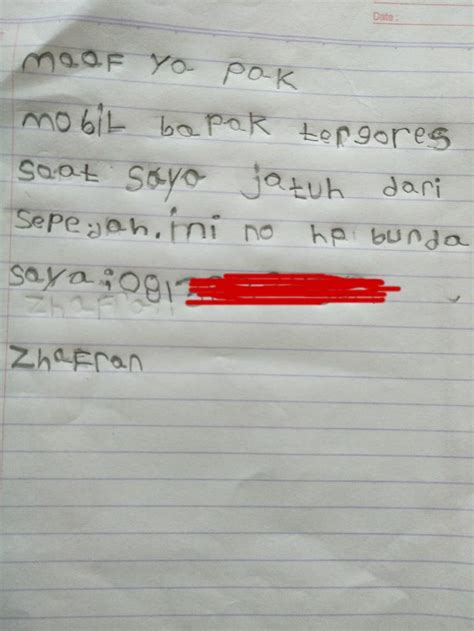 Date :
maaf ya pak
mobil bapak tergores
saat saya jatuh dari
sepedah. ini no hp bunda
saya : 081
Zhafran
Zhafran